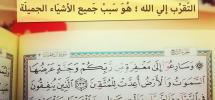 التقرب إلى الله ؛ هُوَ سَبَبُ جَميع الأشياء الجميلَة
وَسَارِعُوٓا۟ إِلَىٰ مَغْفِرَةٍ مِّن رَّبِّكُمْ وَجَنَّةٍ عَرْضُهَا
ٱلسَّمَٰوَٰتُ وَٱلْأَرْضُ أُعِدَّتْ لِلْمُتَّقِينَ ٱلَّذِينَ يُنفِقُونَ